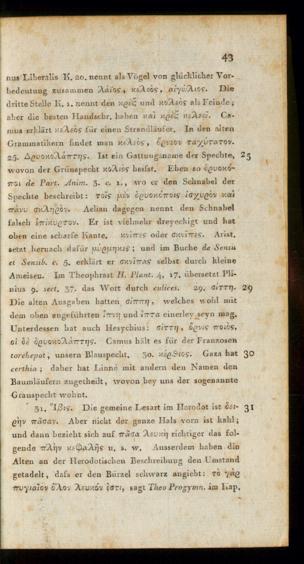 43
nus Liberalis K. 20. nennt als Vögel von glücklicher Vor-
bedeutung zusammen λάιος, κελεός, αἰγώλιος. Die
dritte Stelle K. 1. nennt den κρὲξ und κολεὸς als Feinde;
aber die besten Handschr. haben καὶ κρὲξ κελεῷ. Ca-
mus erklärt κελεὸς für einen Strandläufer. In den alten
Grammatikern findet man κελεὸς, ὄρνεον ταχύτατον.
25. Δρυοκολάπτης. Ist ein Gattungsname der Spechte, 25
wovon der Grünspecht κολιὸς heifst. Eben so δρυοκό-
ποι de Part. Anim. 3. c. 1., wo er den Schnabel der
Spechte beschreibt: τοῖς μὲν δρυοκόποις ἰσχυρὸν καὶ
πάνυ σκληρόν. Aelian dagegen nennt den Schnabel
falsch ἐπίκυρτον. Er ist vielmehr dreyeckigt und hat
oben eine scharfe Kante. κνῖπες oder σκνῖπες. Arist.
setzt hernach dafür μύρμηκες; und im Buche de Sensu
et Sensib. c. 5. erklärt er σκνῖπας selbst durch kleine
Ameisen. Im Theophrast H. Plant. 4, 17. übersetzt Pli-
nius 9. sect. 37. das Wort durch culices. 29. σίττη. 29
Die alten Ausgaben hatten σίππη, welches wohl mit
dem oben angeführten ἵπνη und ἵππα einerley seyn mag.
Unterdessen hat auch Hesychius: σίττη, ὄρνις ποιὸς,
οἱ δὲ δρυοκολάπτης. Camus hält es für der Franzosen
torchepot, unsern Blauspecht. 30. κέρθιος. Gaza hat 30
certhia; daher hat Linné mit andern den Namen den
Baumläufern zugetheilt, wovon bey uns der sogenannte
Grauspecht wohnt.
31. Ἴβις. Die gemeine Lesart im Herodot ist δει- 31
ρὴν πᾶσαν. Aber nicht der ganze Hals vorn ist kahl;
und dann bezieht sich auf πᾶσα λευκὴ richtiger das fol-
gende πλὴν κεφαλῆς u. s. w. Ausserdem haben die
Alten an der Herodotischen Beschreibung den Umstand
getadelt, dafs er den Bürzel schwarz angiebt: τὸ γὰρ
πυγαῖον ὅλον λευκόν ἐστι, sagt Theo Progymn. im Kap.